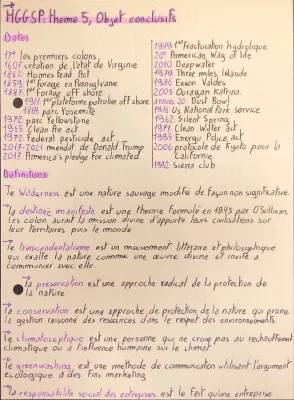 HGGSP: theme 5, Objet conclusifs
Dates
17e les premiers colons
1607 création de l'état de Virginie
1862 Homestead Act
1859 1er forage en Pennsylvanie
1887 1er forage off shore
1911 1er plateforme petrolier off shore
parc Yosemite
1972 parc Yellowstone
1955 Clean Air act
1972 Federal pesticide act
2017-2021 mandat de Donald Trump
2017 America's pledge for climated
1949 1er Fracturation hydrolique
20e American Way of life
2010 Deepwater
1979 Three miles Islande
1986 Exxon Valdes
2005 Ouragan Katrina
année 20 Dust Bowl
1916 US National Park Service
1962 Silent Spring
1977 Clean Water act
1993 Energy Police act
2006 protocole de Kyoto pour la
Californie
1992 Sierra club
Definitions
Te Wilderness est une nature sauvage modifié de façon non significative.
la destinée manifeste est une theorie formulé en 1845 par O'Sullivan,
les colon aurait la mission divine d'apporte leurs civilisations sur
leur territoires puis le monde
Te trancendentalisme est un mouvement littéraire et philosophique
qui exalte la nature comme une œuvre divine et invite a
communier avec elle.
la preservation est une approche radical de la protection de
la nature
la conservation est une approche de protection de la nature qui prone
la gestion raisonné des ressources dans le respect des environnements.
Te climatosceptique est une personne qui ne croye pas au rechauffement
climatique ou a l'influence humaine sur le climat
Te greenwashing est une methode de communication utilisant l'argument
ecologique a des fins marketing
la responsabilité social des entreprises est le fait qu'une entreprise